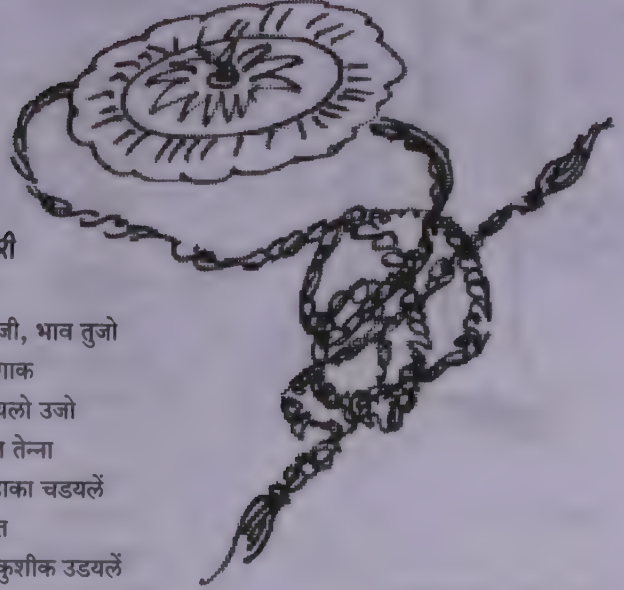 री
जी, भाव तुजो
गाक
यलो उजो
तेन्ना
ाका चडयलें
त
कुशीक उडयलें